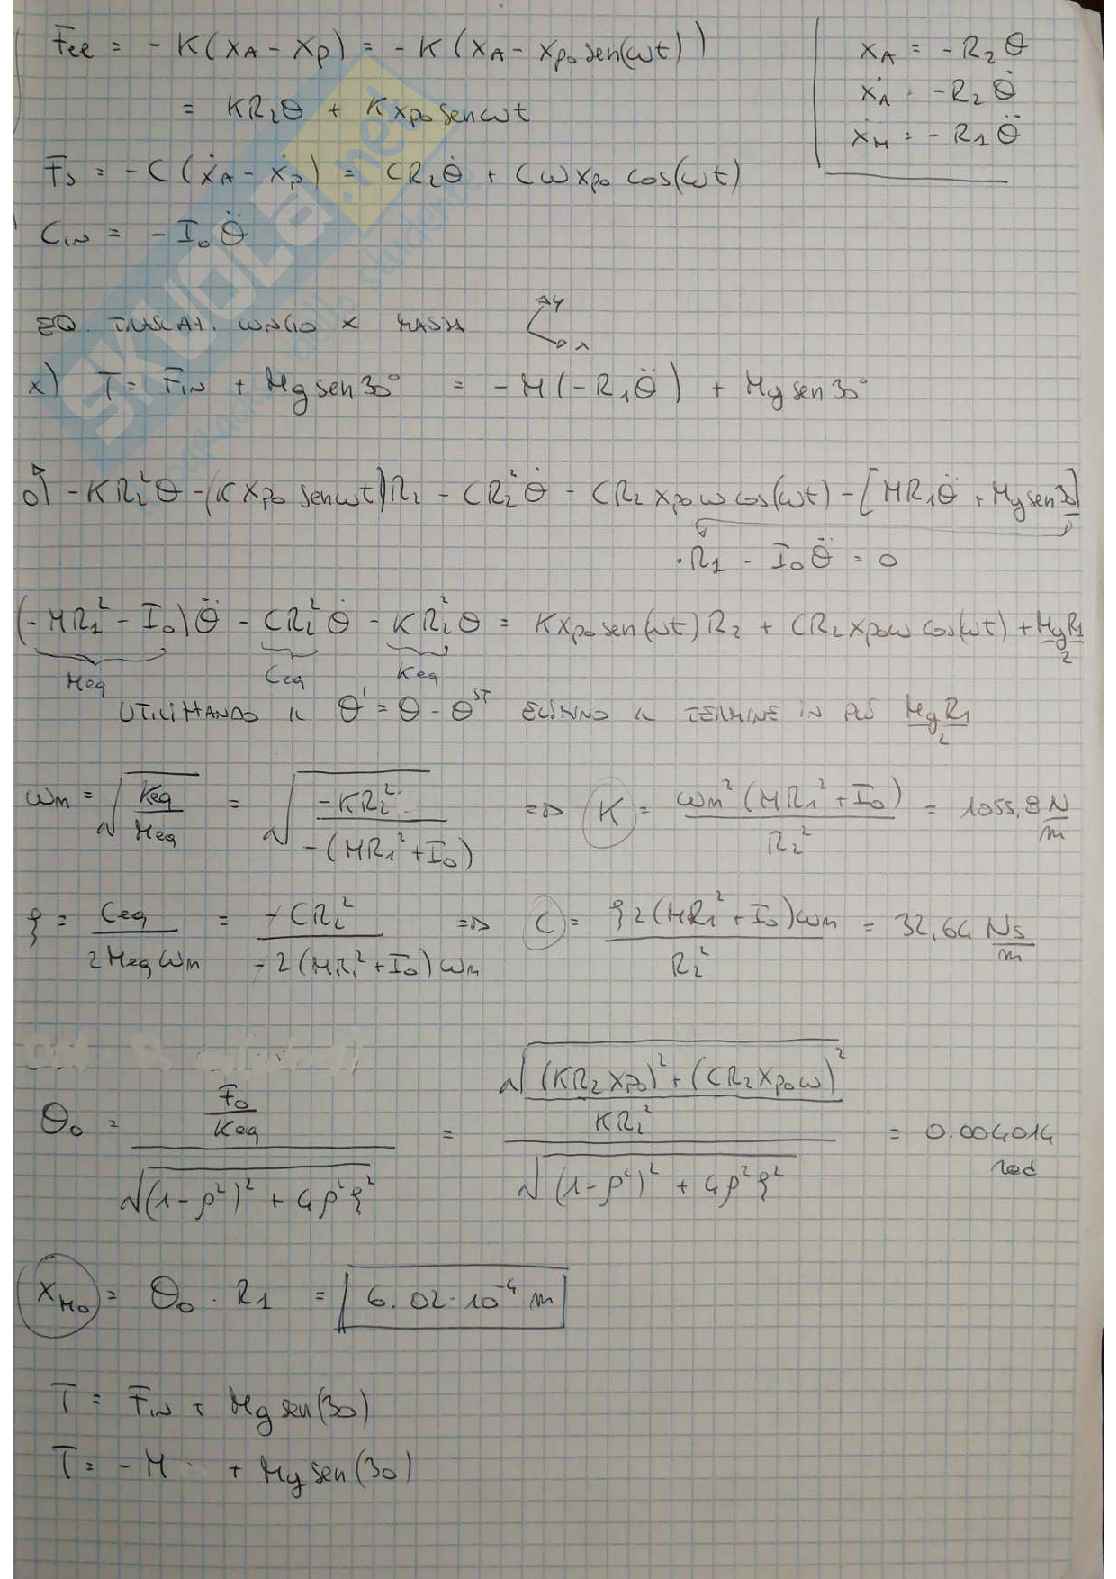 Fee = - K(xA - xP) = - K (xA - xpo sen(ωt))
= KR2θ + K xpo sen ωt
xA = -R2 θ
ẋA = -R2 θ̇
ẍM = -R1 θ̈
Fs = -C (ẋA - ẋp) = CR2θ̇ + Cω xpo cos(ωt)
CiN = - Io θ̈
EQ. TRASLAZ. LUNGO x MASSA
y
x
x) T = FiN + Mg sen30° = - M(-R1θ̈) + Mg sen 30°
o) -KR2²θ - (K xpo sen ωt)R2 - CR2²θ̇ - CR2 xpo ω cos(ωt) - [MR1θ̈ + Mg sen30]
· R1 - Ioθ̈ = 0
(-MR1² - Io)θ̈ - CR2²θ̇ - KR2²θ = K xpo sen(ωt)R2 + CR2 xpo ω cos(ωt) + MgR1/2
Meq Ceq Keq
UTILIZZANDO IL θ' = θ - θST ELIMINO IL TERMINE IN PIÙ MgR1/2
ωn = √(Keq/Meq) = √(-KR2²/-(MR1²+Io)) => K = ωn²(MR1²+Io)/R2² = 1055,8 N/m
ξ = Ceq/2Meqωn = -CR2²/-2(MR1²+Io)ωn => C = ξ2(MR1²+Io)ωn/R2² = 32,64 Ns/m
θo = (Fo/Keq)/√((1-ρ²)²+4ρ²ξ²) = (√((KR2xpo)²+(CR2xpoω)²)/KR2²)/√((1-ρ²)²+4ρ²ξ²) = 0.004014 rad
xMo = θo · R1 = 6.02·10⁻⁴ m
T = FiN + Mg sen(30)
T = -M + Mg sen(30)
SKUOLA.net